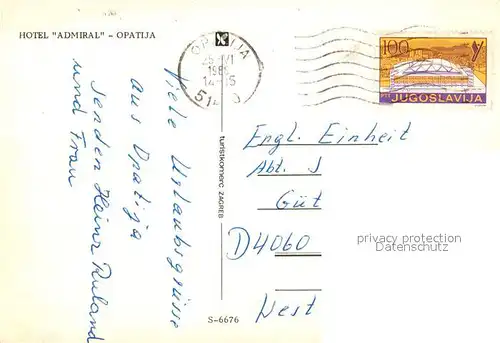 HOTEL "ADMIRAL" - OPATIJA
OPATIJA
14-15
100
JUGOSLAVIJA
Viele Urlaubsgrüsse
aus Opatija
senden Heinz Ruland
und Frau
turistkomerc ZAGREB
Engl. Einheit
Abt. J
Güt
D4060
West
privacy protection
Datenschutz
S-6676